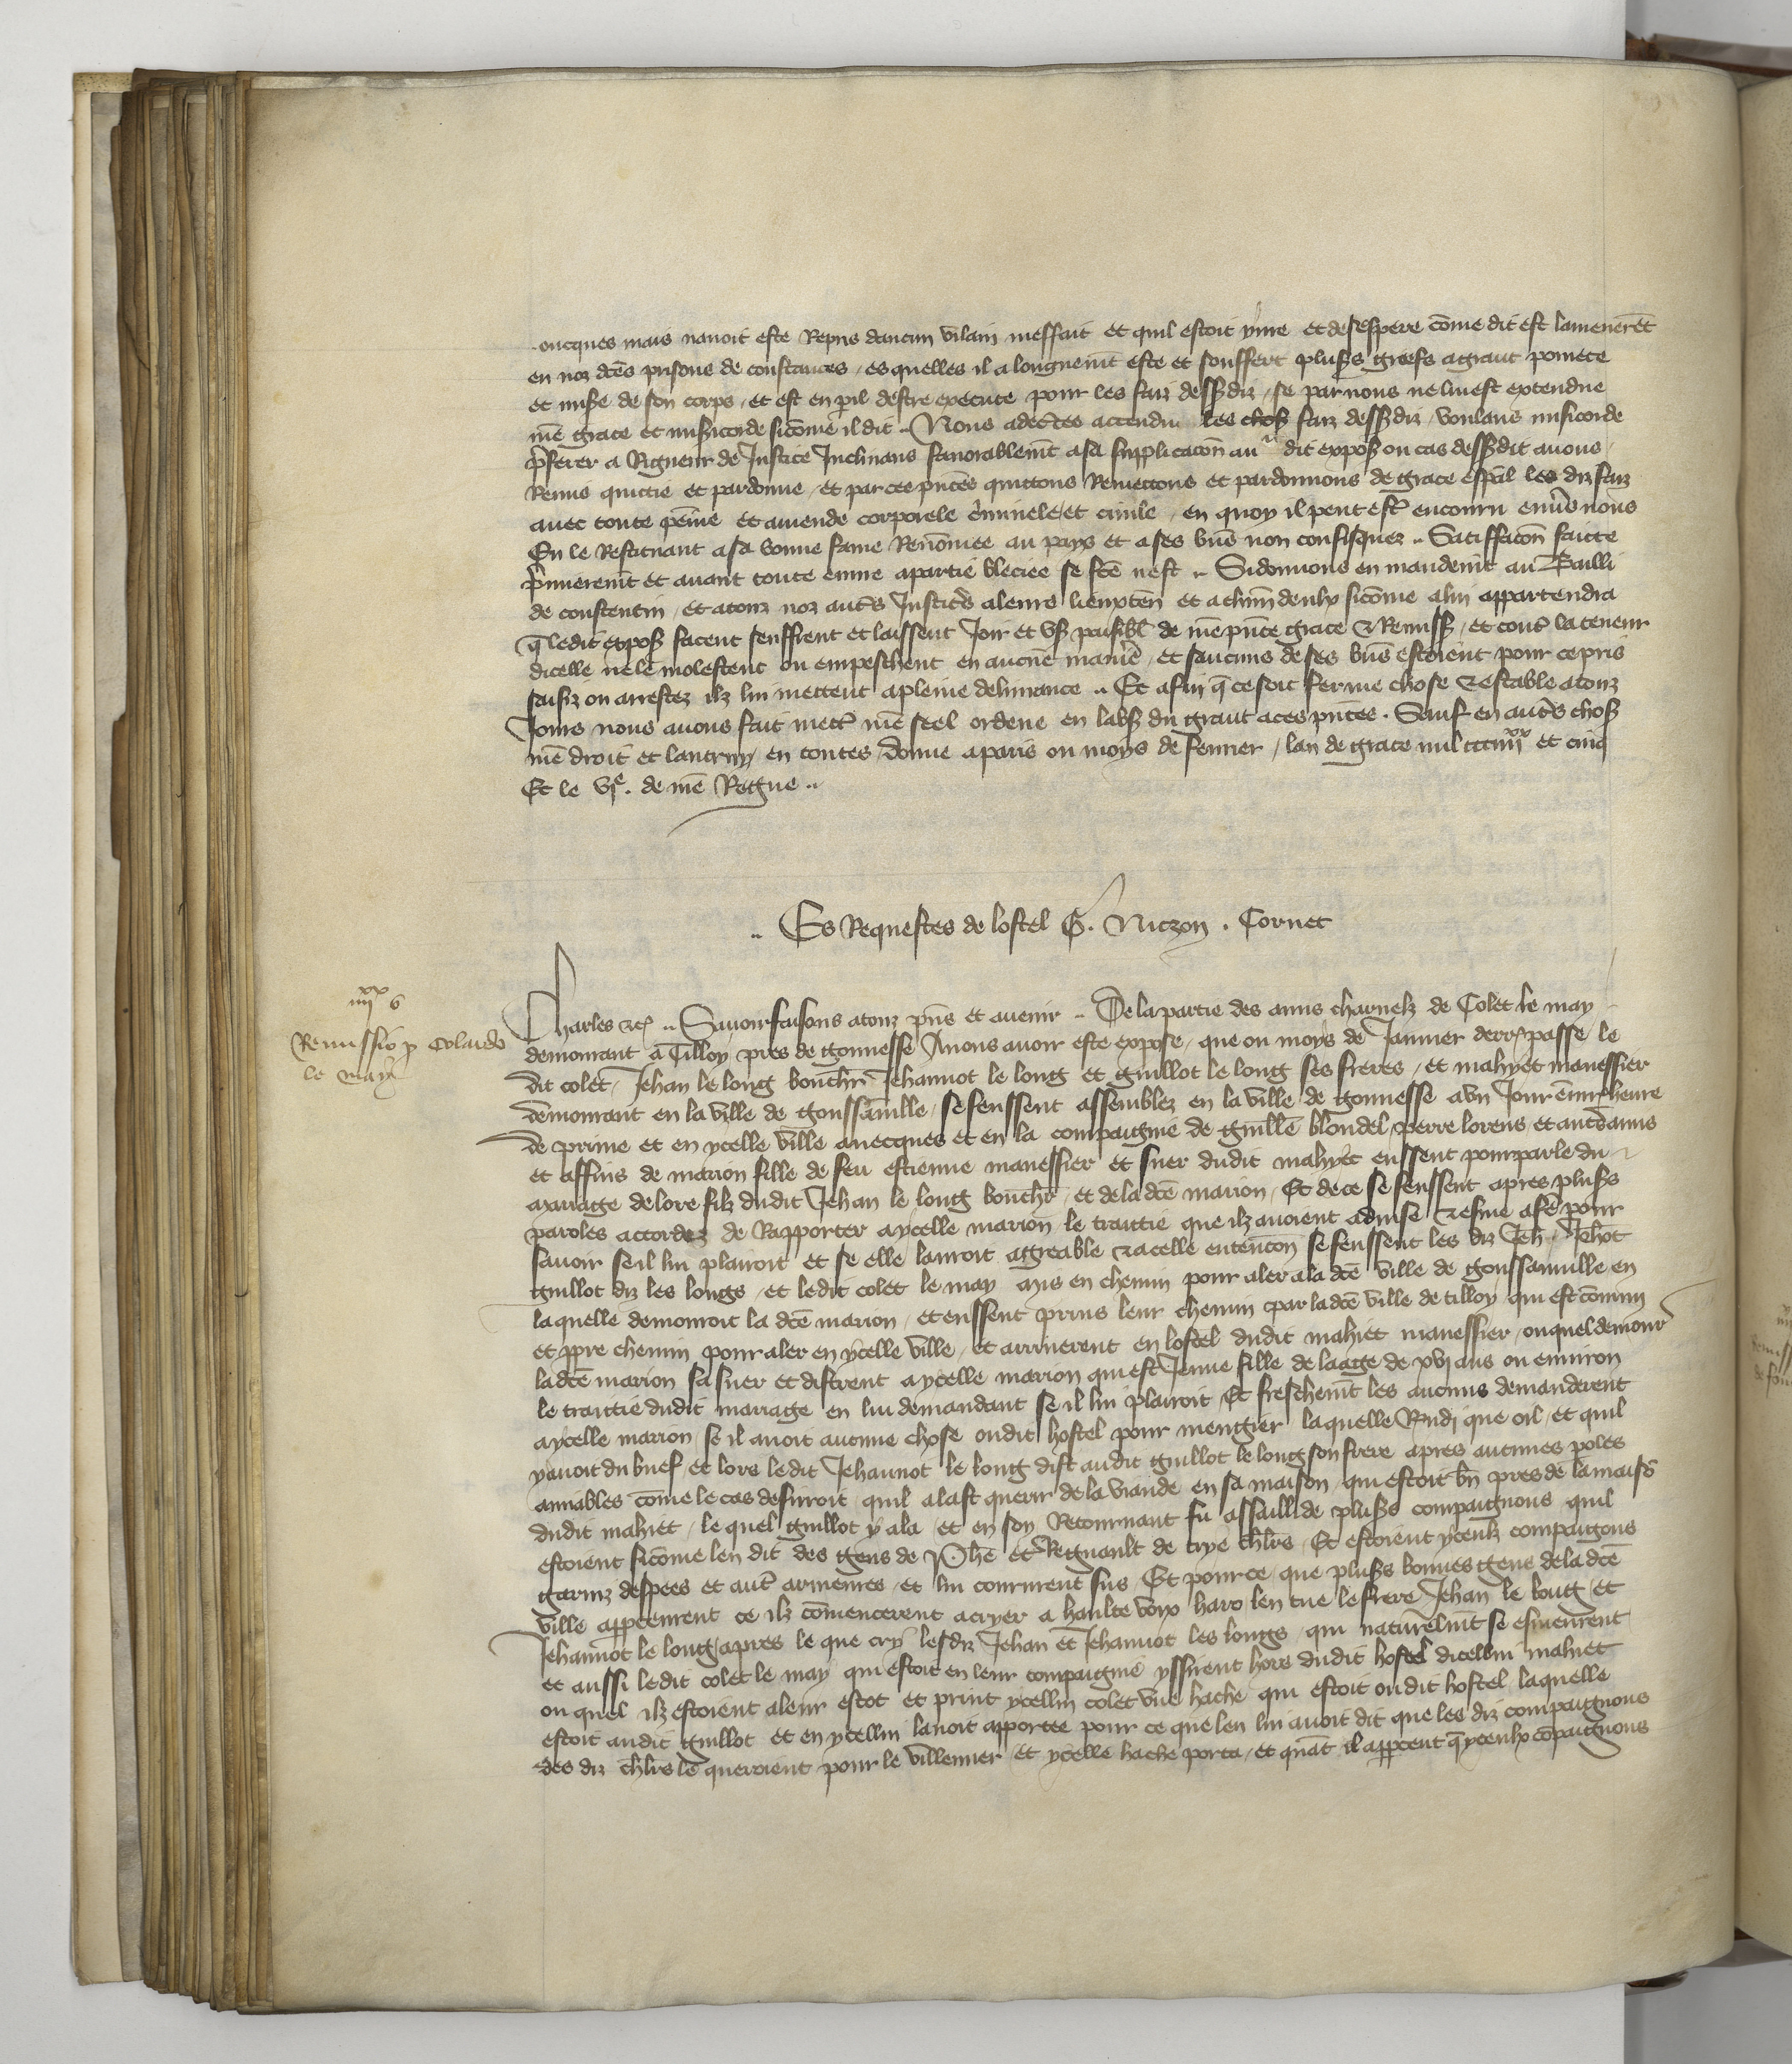 oncques mais navoit este Repris daucun vilain meffait et quil estoit yvre et desespere cōme dit est lamenerēt
en noz dc̄es prisons de constances, es quelles il a longuemt este et souffert plus̄s griefs a grant povrete
et mis̄e de son corps, et est en pil destre execute pour les faiz dess̄diz, se par nous ne lui est extendue
nr̄e grace et mis̄icorde sicōme il dit .. Nous adec̄tes attendu les faiz dess̄diz, voulans misicorde
p̄ferer a Rigueur de Justice Inclinans favorablemt a sa supplicacōn audit expos̄ ou cas dess̄dit avons
Remis quictie et pardonne, et par ces pn̄tes quittons Remettons et pardonnons de grace esp̄al les diz faiz
avec toute peine et amende corporele c̄minele et civile, en quoy il peut est̄ encouru env̄s nous
En le Restituant a sa bonne fame Renōmee au pays et a ses biēs non confisquez .. Satisfacōn faicte
p̄mieremt et avant toute euvre a partie bleciee se fc̄e nest .. Si donnons en mandemt au Bailli
de constentin, et a touz noz aut̄s Justic̄s a leurs lieuxten̄ et a chūn deulx sicōme a lui appartendra
q̄ ledit expos̄ facent seuffrent et laissent Joir et us̄ paisibl̄ de nr̄e pn̄te grace & Remiss̄, et cont̄ la teneur
dicelle ne le molestent ou empeschent en aucūe manie, et saucuns de ses biēs estoient pour ce pris
saisiz ou arrestez ilz lui mettent a pleine delivrance .. Et afin q̄ ce soit ferme chose & estable a touz
Jours nous avons fait mett̄ nr̄e seel ordene en labs̄ du grant a ces pn̄tes . Sauf en aut̄s chos̄
nr̄e droit et lautruy, en toutes, donne a paris ou moys de fevrier, lan de grace mil ccciiijxx et cinq
Et le vje . de nr̄e Regne ..
.. Es Requestes de lostel G. Niczon . Cornet
iiijxx 6
Remissio p Colardo
le may
Charles &c .. Savoir faisons a touz pn̄s et avenir .. De la partie des amis charnelz de Colet le may
demourant a Tilloy pres de gonnesse A nous avoir este expose, que ou moys de Janvier derr̄ passe le
dit colet, Jehan le long bouch̄r Jehannot le long et guillot le long ses freres, et mahyet manessier
demourant en la ville de goussainville, se feussent assemblez en la ville de gonnesse a vn Jour env̄ heure
de prime et en ycelle ville avecques et en la compaignie de guille blondel, perre lorens, et aut̄s amis
et affins de marion fille de feu estienne manessier et suer dudit mahyet eussent pourparle du
mariage de lore filz dudit Jehan le long bouch̄r, et de la dc̄e marion, Et de ce se feussent apres plus̄s
paroles accordez de Rapporter a ycelle marion le traittie que ilz avoient advise & esme a fē pour
savoir se il lui plairoit et se elle lauroit agreable & a celle entencōn se feussent les diz Jeh̄ . Jehōt
guillot diz les longs, et ledit colet le may mis en chemin pour aler a la dc̄e ville de goussainville en
laquelle demouroit la dc̄e marion, et eussent prins leur chemin par la dc̄e ville de tilloy qui est cōmun
et ppre chemin pour aler en ycelle ville, et arriverent en lostel dudit mahiet manessier, ouquel demour̄
la dc̄e marion sa suer et distrent a ycelle marion qui est Jeune fille de laage de xvj ans ou environ
le traittie dudit mariage en lui demandant se il lui plairoit, Et freschemt les aucuns demanderent
a ycelle marion se il avoit aucune chose oudit hostel pour mengier, laquelle Rndi que oil, et quil
y avoit du buef, et lors ledit Jehannot le long dist audit guillot le long son frere apres aucunes poles
amiables cōme le cas desiroit, quil alast querir de la viande en sa maison qui estoit bn̄ pres de la maisō
dudit mahiet, le quel guillot y ala, et en son Retournant fu assailli de plus̄s compaignons quil
estoient sicōme len dit des gens de Ph̄e et Regnault de trye chl̄rs, Et estoient yceulx compaigōns
garniz despees et aut̄ armeures, et lui coururent sus, Et pource que plus̄s bonnes gens de la dc̄e
ville apperceurent ce ilz cōmencerent a cryer a haulte voix haro len tue le frere Jehan le long et
Jehannot le long, apres le que cry lesdiz Jehan et Jehannot les longs, qui naturelmt se esmeurent
et aussi ledit colet le may qui estoit en leur compaignie yssirent hors dudit hostel dicellui mahiet
ou quel ilz estoient a leur escot et print ycellui colet vne hache qui estoit oudit hostel laquelle
estoit audit guillot et en ycellui lavoit apportee pour ce que len lui avoit dit que les diz compaignons
des diz chl̄rs le queroient pour le villenner, et ycelle hache porta, et quāt il appceut q̄ yceulx cōpaignons